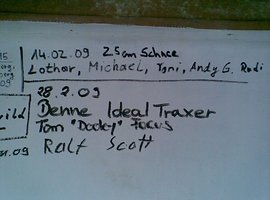 14.02.09 25cm Schnee
Lothar, Michael, Toni, Andy G. Rudi
28.2.09
Benne Ideal Traxer
Tom "Docky" Focus
Ralf Scott